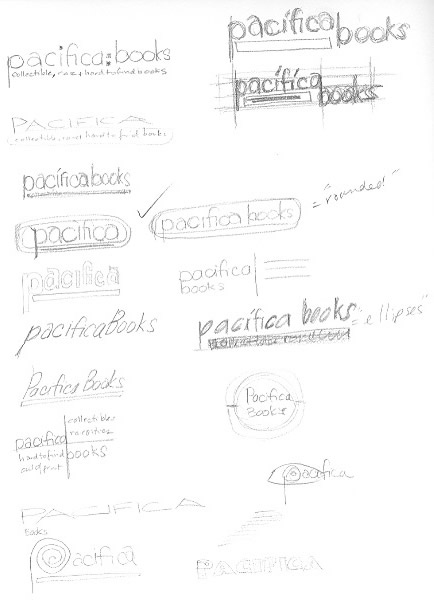 pacifica:books
collectible, rare & hard to find books
pacifica
books
pacifica
books
PACIFICA
collectible, rare & hard to find books
pacificabooks
pacifica
pacifica books
="rounded!"
pacifica
pacifica
books
pacificaBooks
pacifica books
="ellipses"
Pacifica Books
Pacifica
Books
collectibles
pacifica
hard to find
books
out of print
pacifica
PACIFICA
books
pacifica
PACIFICA